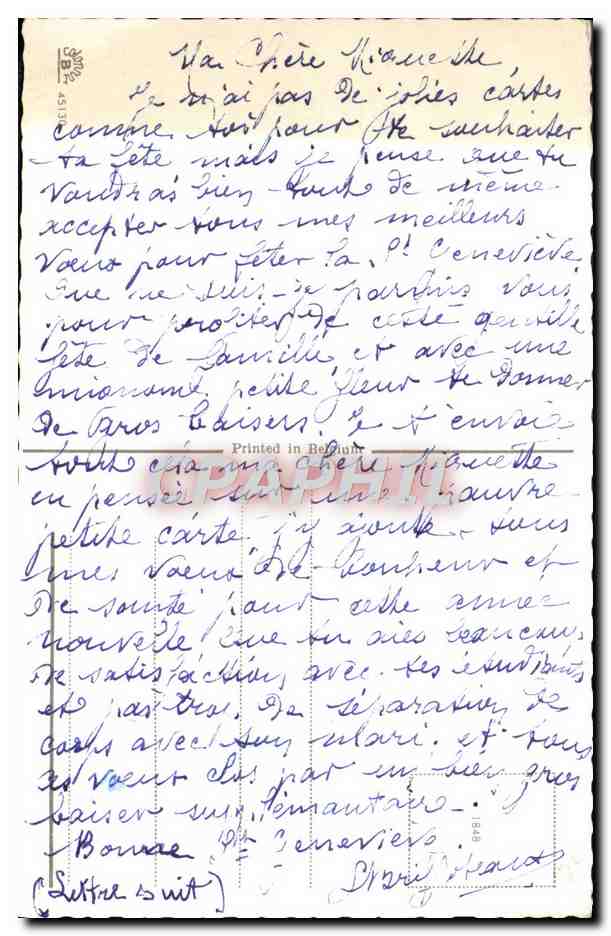 Ma Chère Mionette
Je n'ai pas de jolies cartes
comme toi pour te souhaiter
ta fête mais je pense que tu
voudras bien tout de même
accepter tous mes meilleurs
voeux pour fêter la St Geneviève
Que ne suis-je parmis vous
pour profiter de cette gentille
fête de famille et avec une
mignome petite fleur te donner
de gros baisers. Je t'envoie
Printed in Belgium
tout cela ma chère Mionette
CPAPHIL
en pensée sur une pauvre
petite carte j'y ajoute tous
mes voeux de bonheur et
de santé pour cette année
nouvelle Que tu aies beaucoup
de satisfaction avec tes étudiants
et pas trop de séparation de
corps avec ton mari. et tous
ces voeux clos par un bien gros
baiser supplémentaire.
Bonne Ste Geneviève.
(Lettre suit)
JBR
45130
1848